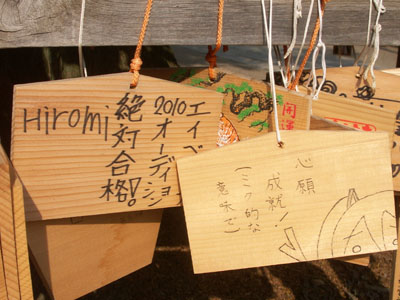 Hiromi
エイベ
2010オーディション
絶対合格!
開運
心願
成就!
(ミク的な
意味で)